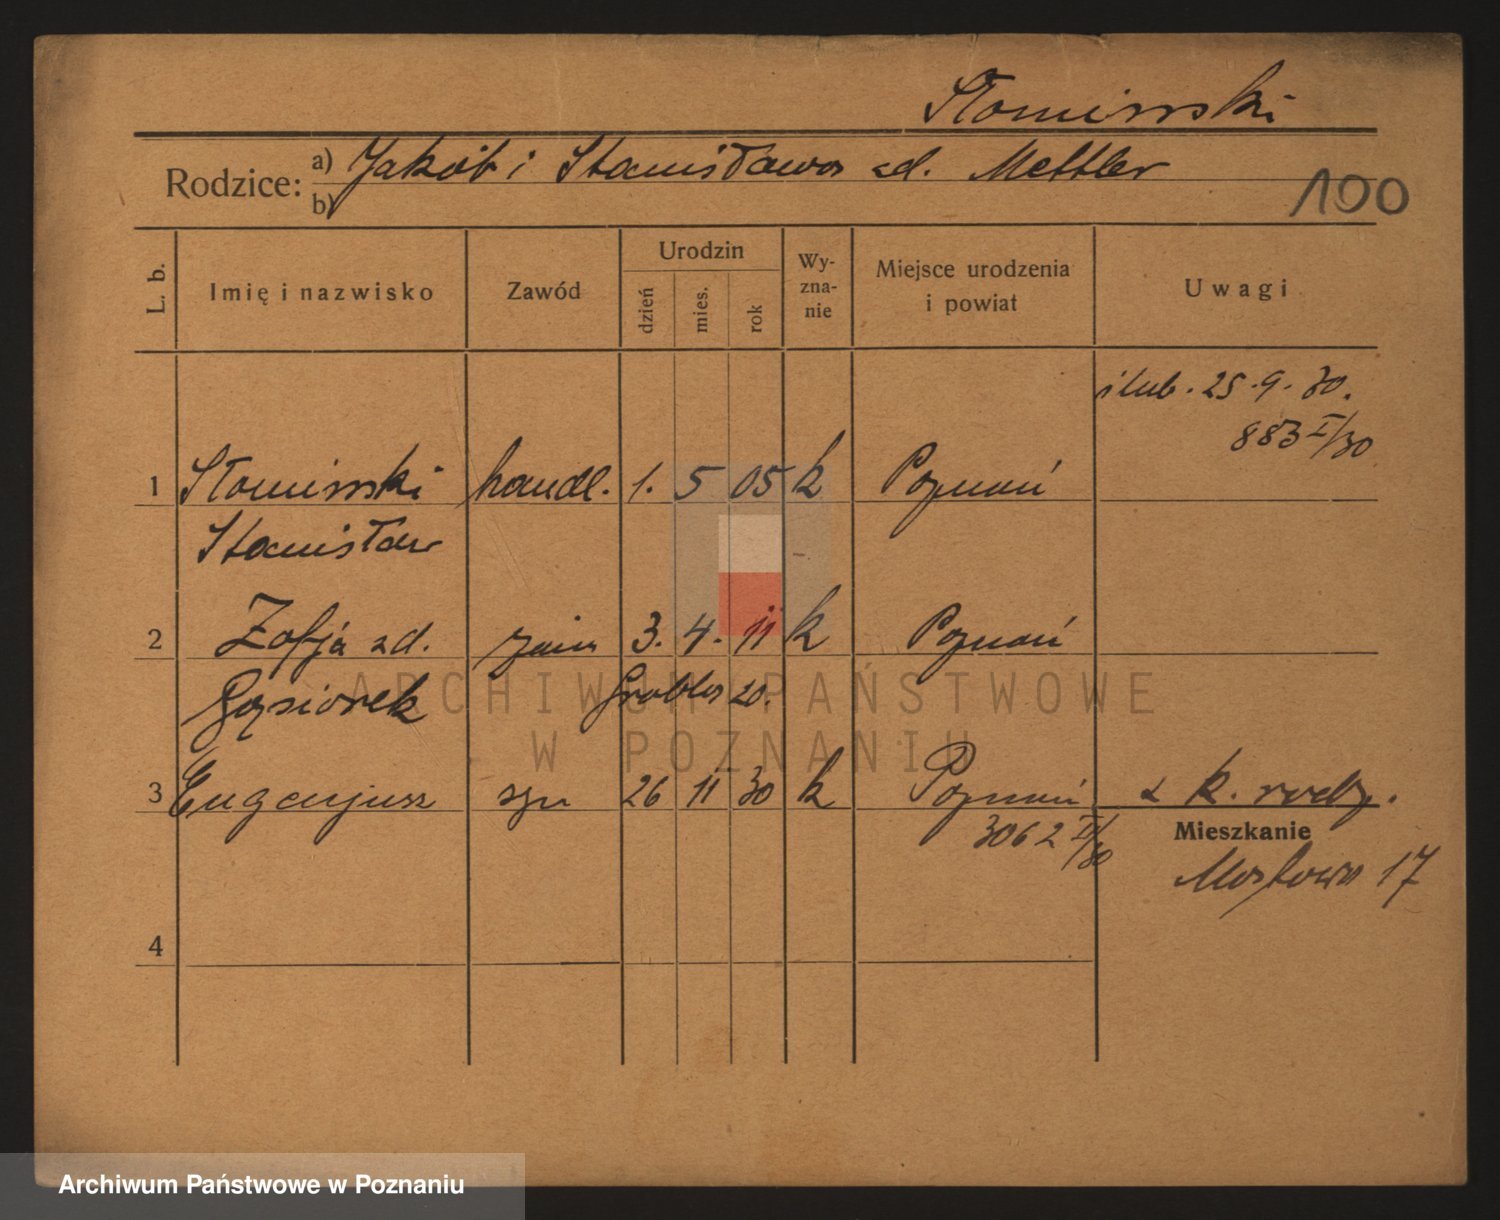 Słomiński
Rodzice: a) Jakób i Stanisława zd. Mettler
b)
100
L. b. Imię i nazwisko Zawód Urodzin dzień mies. rok Wy-zna-nie Miejsce urodzenia i powiat Uwagi
ślub. 25.9.30.
883 I/30
1 Słomiński handl. 1. 5 05 k Poznań
Stanisław
2 Zofja zd. żona 3. 4. 11 k Poznań
Gąsiorek Grobla 20.
3 Eugenjusz syn 26 11 30 k Poznań z k. rodz.
3062 II/30
Mieszkanie
Mostowa 17
4
ARCHIWUM PAŃSTWOWE
W POZNANIU
Archiwum Państwowe w Poznaniu